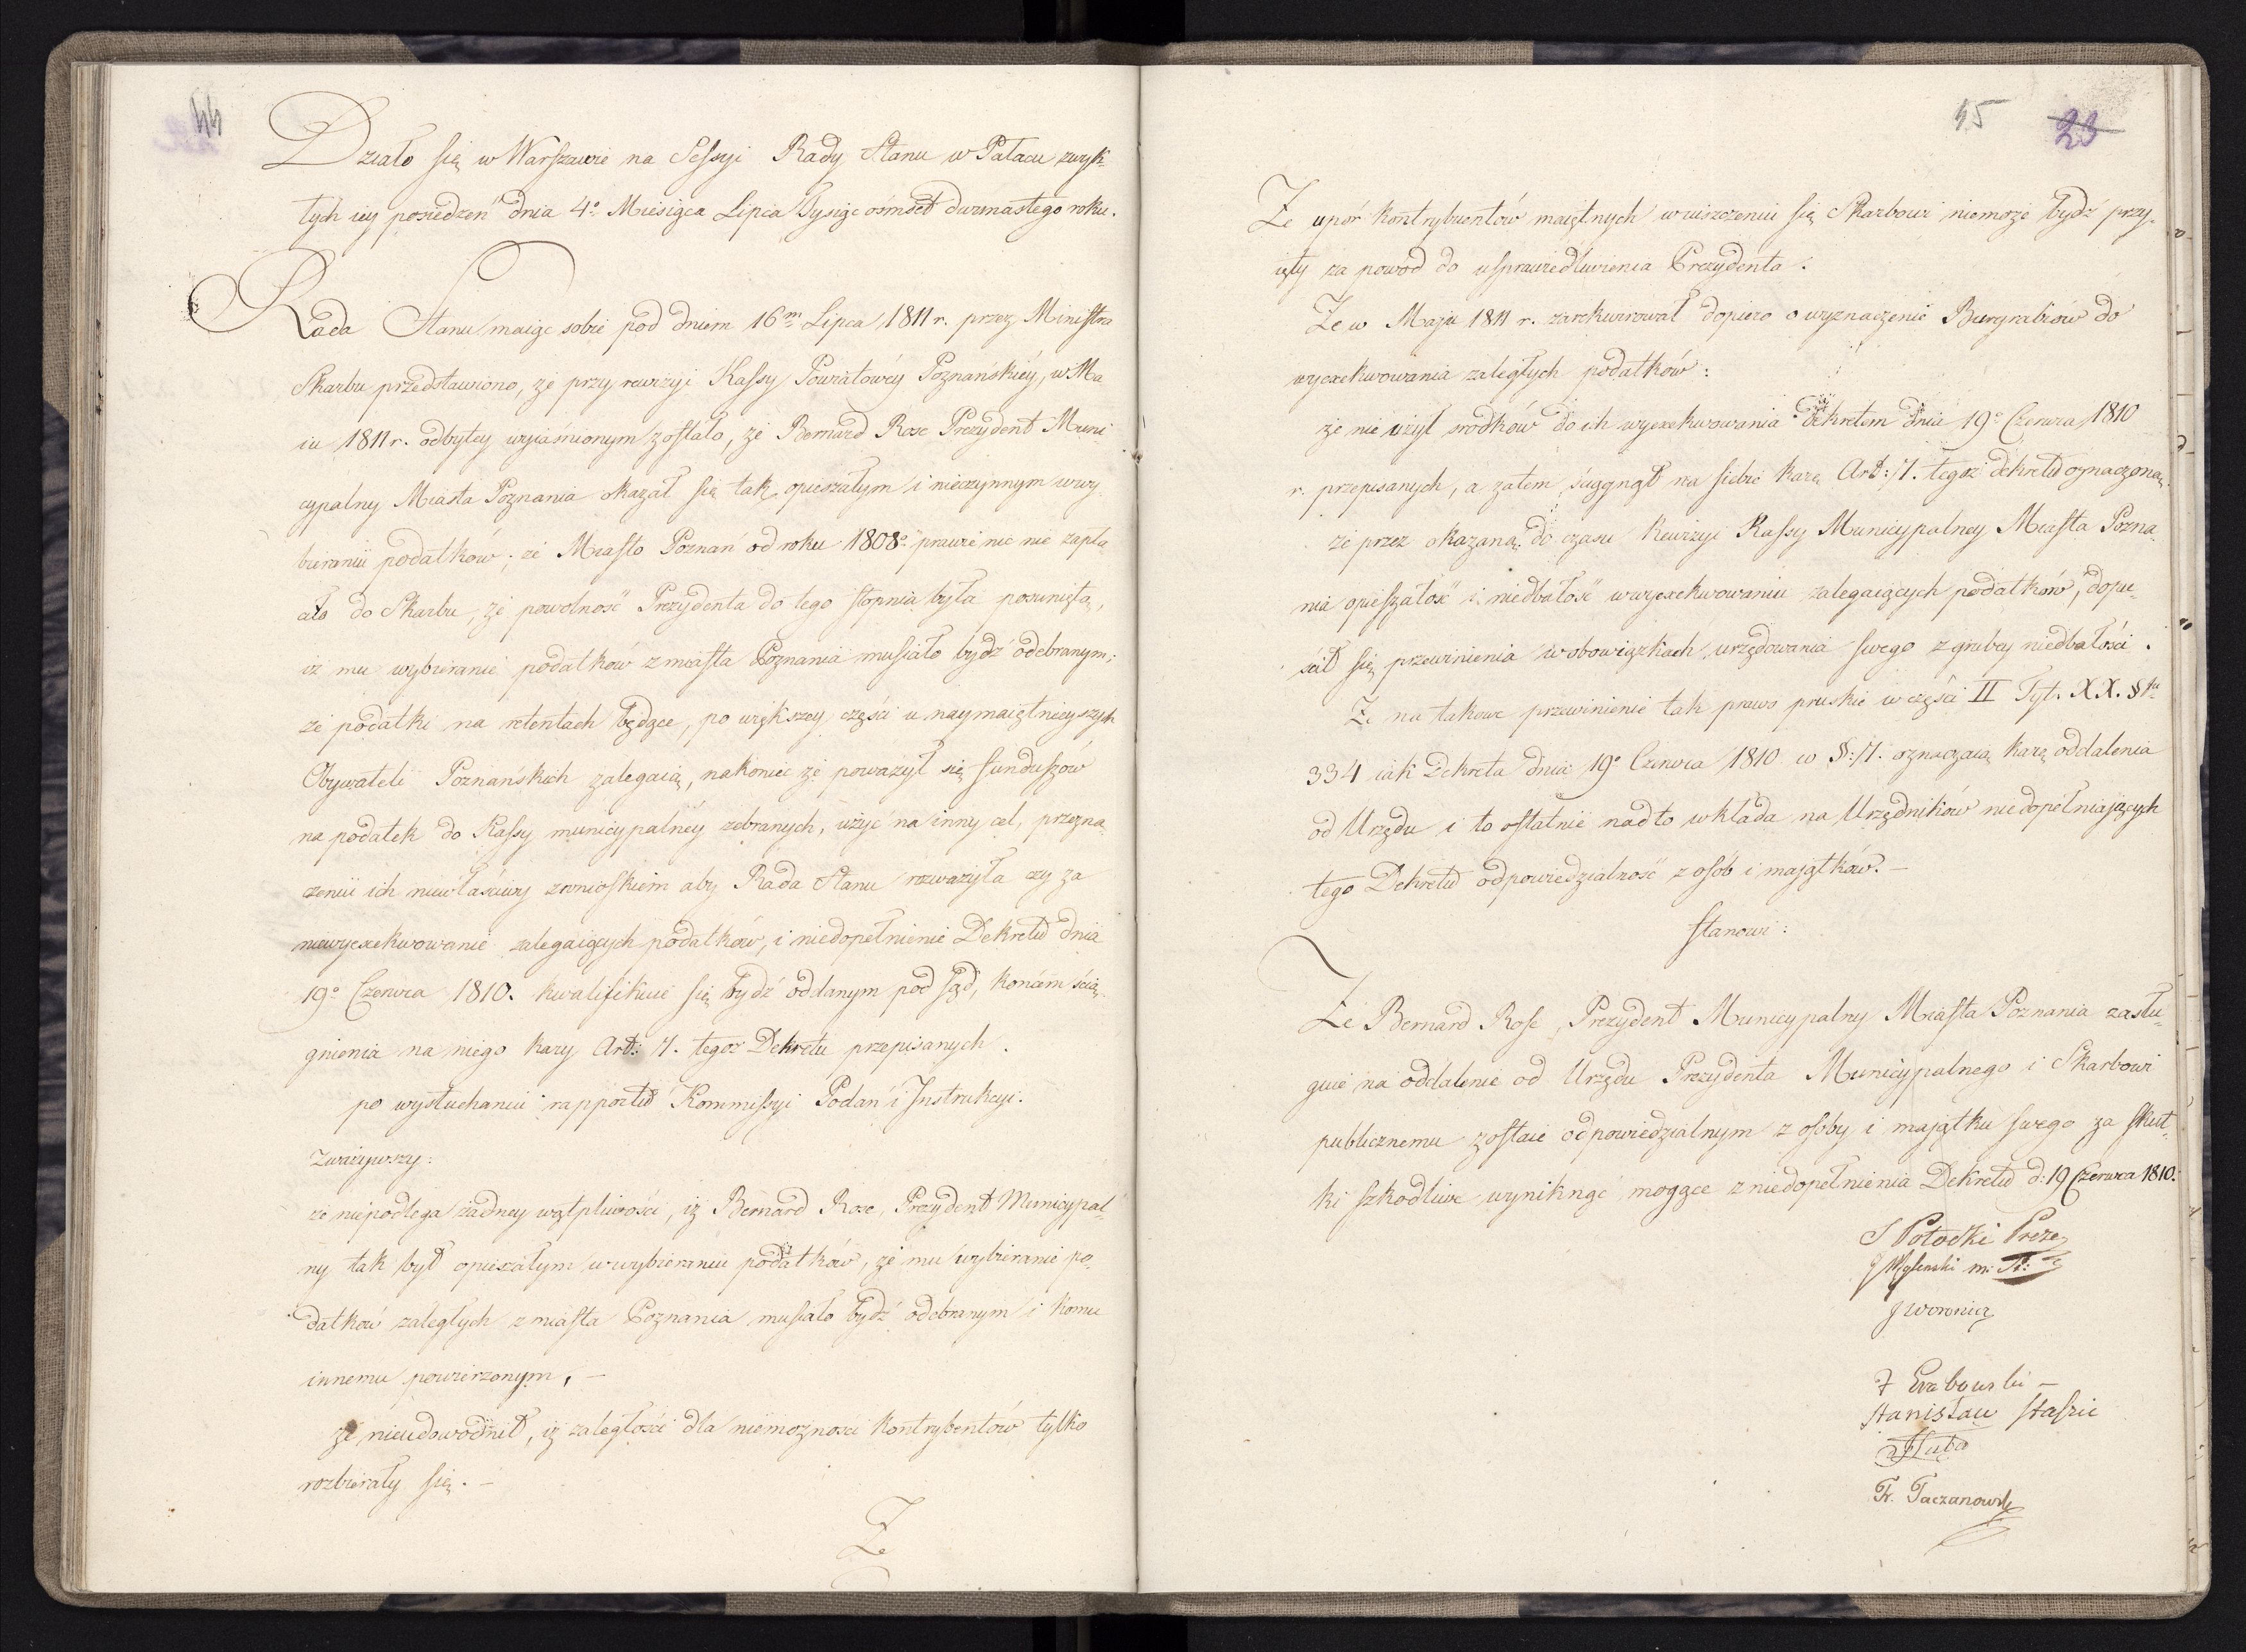 44
Działo się w Warszawie na Sessyi Rady Stanu w Pałacu zwyk-
łych iey posiedzeń dnia 4º Miesiąca Lipca Tysiąc ośmset dwunastego roku.
Rada Stanu maiąc sobie pod dniem 16m Lipca 1811 r. przez Ministra
Skarbu przedstawiono, że przy rewizyi Kassy Powiatowéy Poznańskiéy, w Ma
iu 1811 r. odbytey wyiaśnionym zostało, że Bernard Rose Prezydent Muni
cypalny Miasta Poznania okazał się tak opieszałym i nieczynnym w wy
bieraniu podatków; że Miasto Poznań od roku 1808º prawie nic nie zapła
ało do Skarbu, że powolność Prezydenta do tego stopnia była posunięta,
iż mu wybieranie podatków z miasta Poznania musiało bydź odebranym;
że podatki na retentach będące, po większey części u naymaiętnieyszych
Obywateli Poznańskich zalegaią, nakoniec że poważył się funduszów
na podatek do Kassy municypalnéy zebranych, użyć na inny cel, przezna
czeniu ich niewłaściwy z wnioskiem aby Rada Stanu rozważyła czy za
niewyexekwowanie zalegaiących podatków, i niedopełnienie Dekretu dnia
19º Czerwca 1810. kwalifikuie się bydź oddanym pod sąd, końcem ścią
gnienia na niego kary Art: 7. tegoż Dekretu przepisanych.
po wysłuchaniu rapportu Kommissyi Podań i Instrukcyi.
Zważywszy:
że niepodlega żadney wątpliwości, iż Bernard Rose, Prezydent Municypal-
ny tak był opieszałym w wybieraniu podatków, że mu wybieranie po-
datków zaległych z miasta Poznania musiało bydź odebranym i komu
innemu powierzonym, –
że nieudowodnił, iż zaległości dla niemożności kontrybentów tylko
rozbierały się. –
Ze
45 23
Ze upór kontrybuentów maiętnych w uiszczeniu się Skarbowi niemoże bydź przy-
ięty za powód do usprawiedliwienia Prezydenta.
Ze w Maju 1811 r. zarekwirował dopiero o wyznaczenie Burgrabiów do
wyexekwowania zaległych podatków:
że nie użył srodków do ich wyexekwowania Dekretem dnia 19º Czerwca 1810
r. przepisanych, a zatem ściągnął na siebie karę Art: 7. tegoż dekretu oznaczoną.
że przez okazaną do czasu Rewizyi Kassy Municypalney Miasta Pozna
nia opieszałość i niedbałość w wyexekwowaniu zalegaiących podatków, dopu-
ścił się przewinienia w obowiązkach urzędowania swego z grubey niedbałości.
Ze na takowe przewinienie tak prawo pruskie w części II Tyt. XX. §fu
334 iak Dekreta dnia 19º Czerwca 1810 w §: 7. oznaczaią karę oddalenia
od Urzędu i to ostatnie nadto wkłada na Urzędników niedopełniających
tego Dekretu odpowiedzialność z osób i majątków. –
stanowi:
Ze Bernard Rose, Prezydent Municypalny Miasta Poznania zasłu-
guie na oddalenie od Urzędu Prezydenta Municypalnego i Skarbowi
publicznemu zostaie odpowiedzialnym z osoby i majątku swego za skut-
ki szkodliwe wyniknąć mogące z niedopełnienia Dekretu d: 19 Czerwca 1810:
S Potocki Preze
J Węglenski m: S:
J Woronicz
J Grabowski –
Stanisław Staszic
Fr. Taczanowski